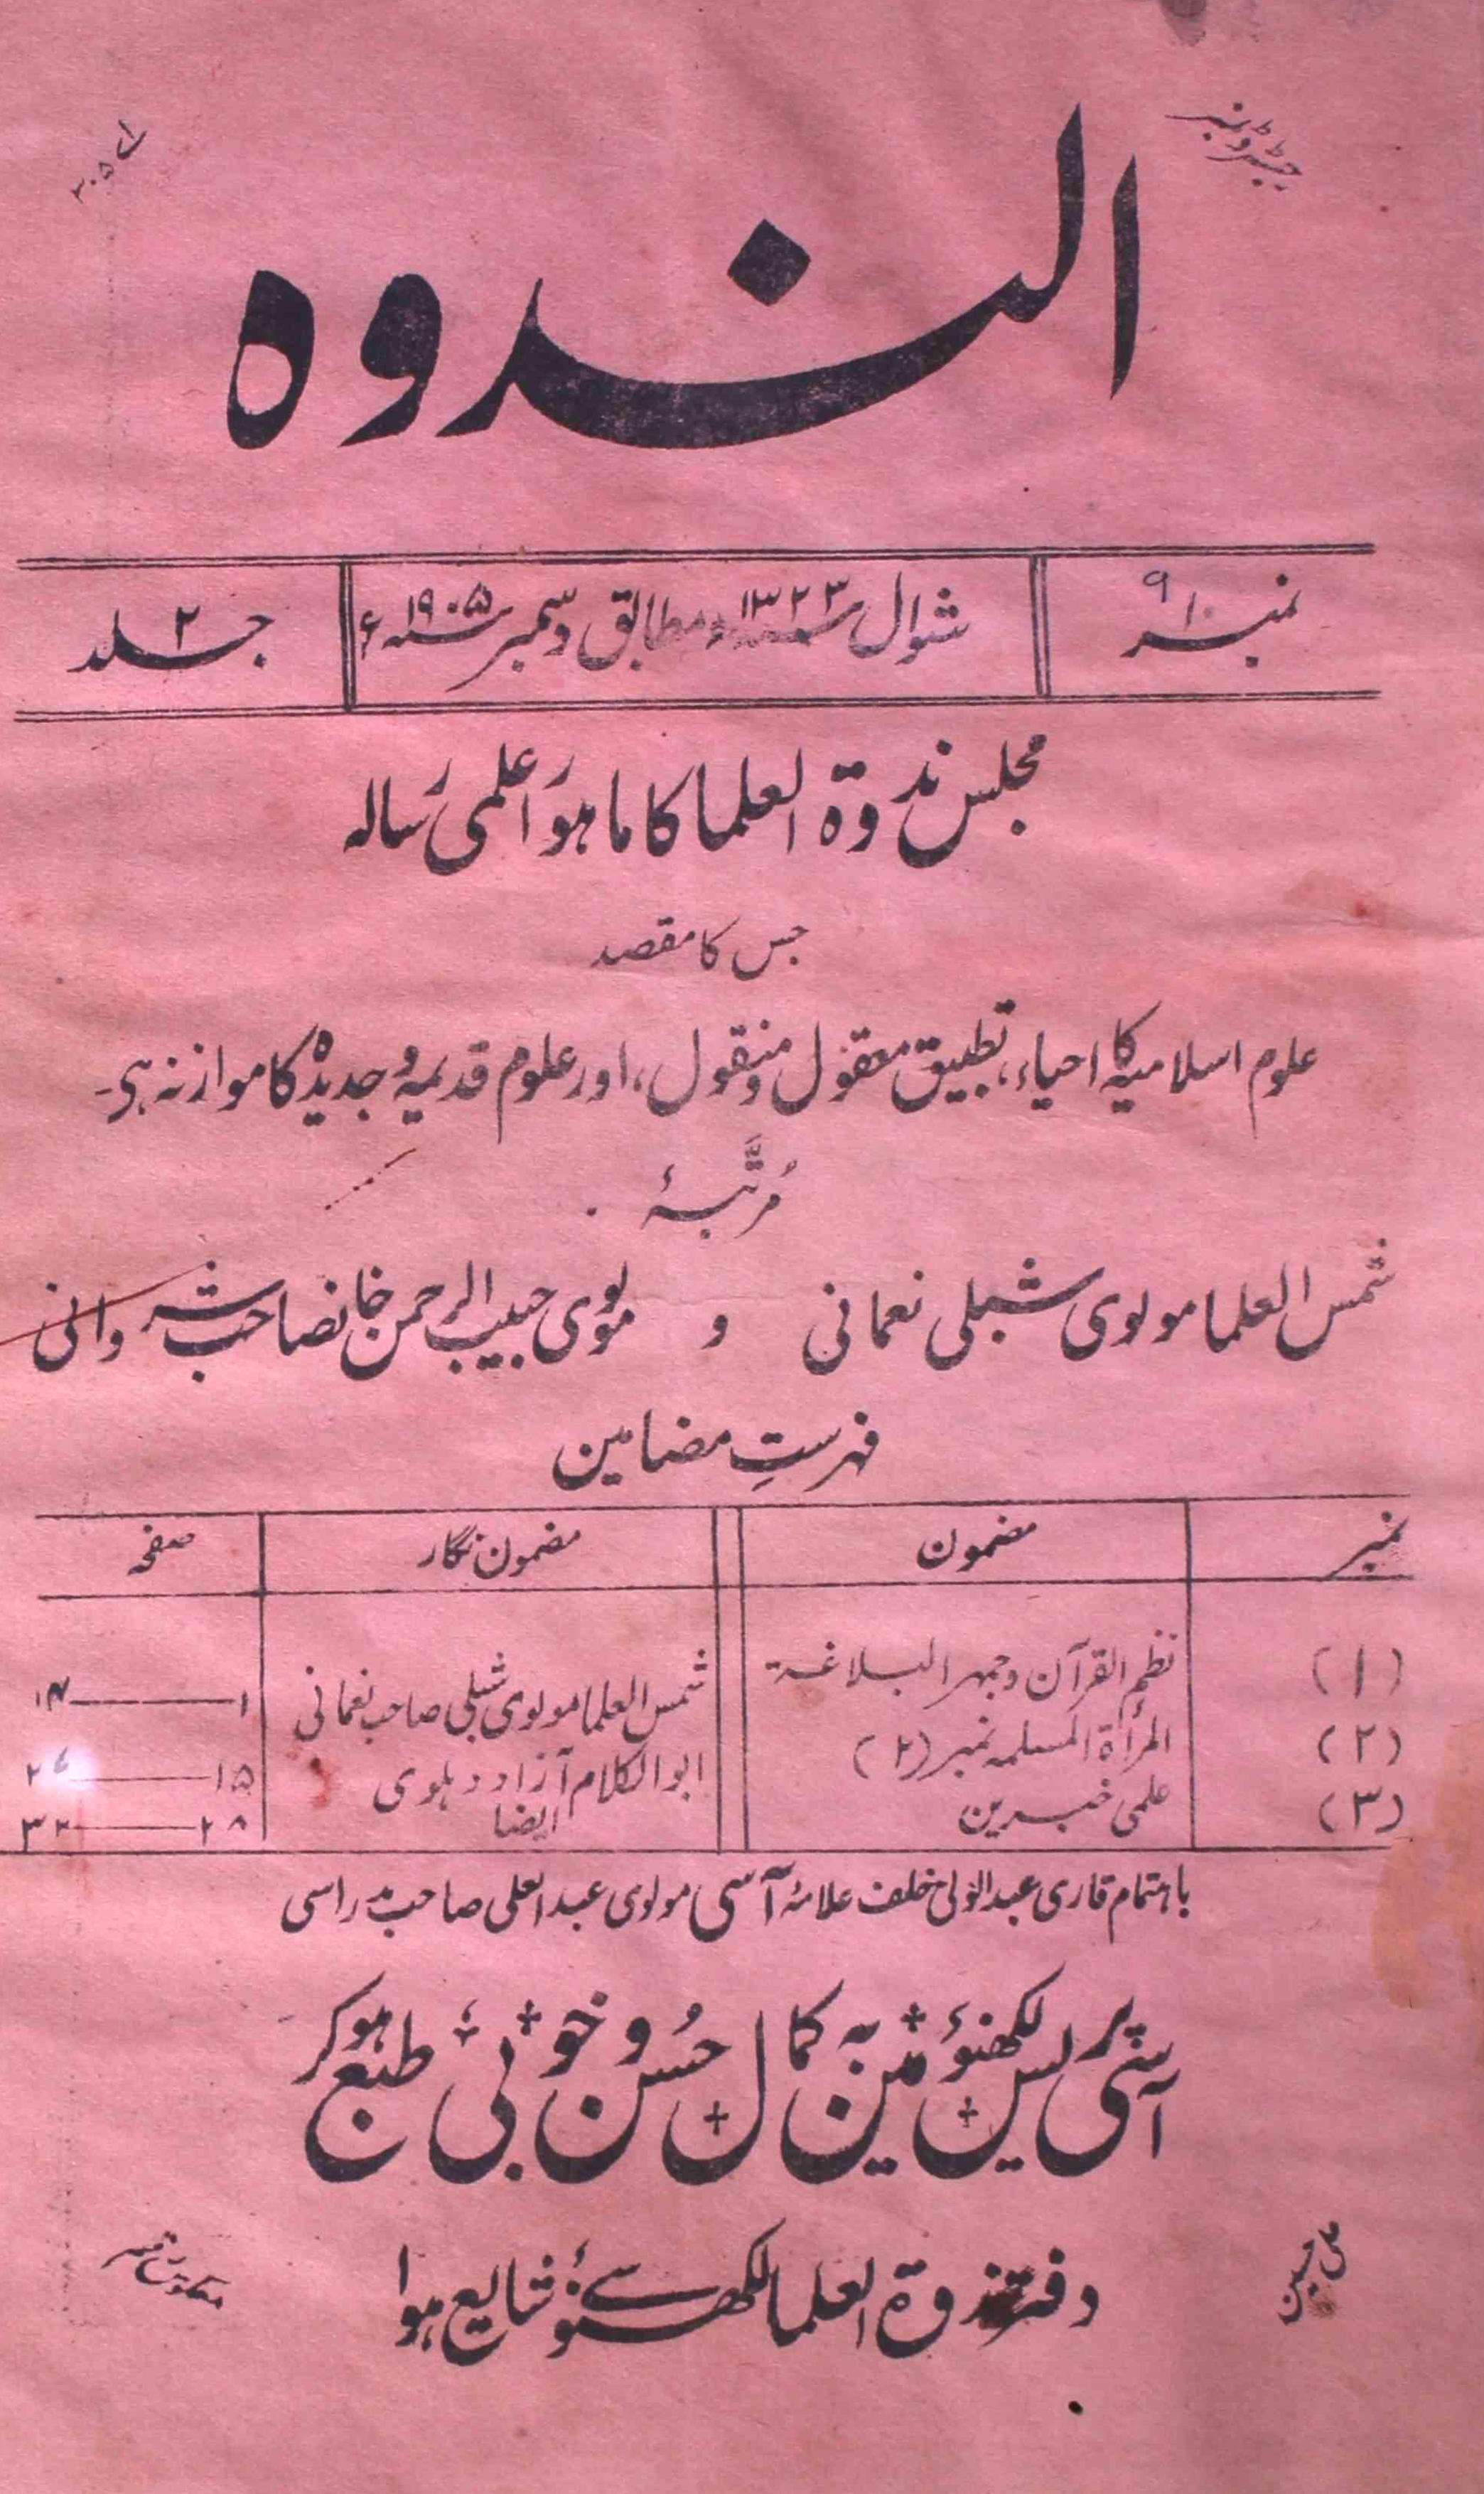 رجسٹرڈ نمبر
اے ۳۰۵
الندوہ
نمبر ۱۰ ۹
شوال سنہ ۱۳۲۳ھ مطابق دسمبر سنہ ۱۹۰۵ء
جلد ۲
مجلس ندوۃ العلما کا ماہوار علمی رسالہ
جس کا مقصد
علوم اسلامیہ کا احیاء، تطبیق معقول و منقول، اور علوم قدیمہ و جدیدہ کا موازنہ ہی۔
مُرتَّبۂ
شمس العلما مولوی شبلی نعمانی و مولوی حبیب الرحمن خانصاحب شروانی
فہرستِ مضامین
نمبر مضمون مضمون نگار صفحہ
(۱) نظم القرآن و جمہر البلاغۃ شمس العلما مولوی شبلی صاحب نعمانی ۱ — ۱۴
(۲) المرأۃ المسلمہ نمبر (۲) ابو الکلام آزاد دہلوی ۱۵ — ۲۷
(۳) علمی خبرین ایضا ۲۸ — ۳۲
باہتمام قاری عبد الولی خلف علامۂ آسی مولوی عبد العلی صاحب مدراسی
آسی پریس لکھنؤ مین بہ کمال حُسن و خوبی طبع ہوکر
دفتر ندوۃ العلما لکھنؤ سے شایع ہوا